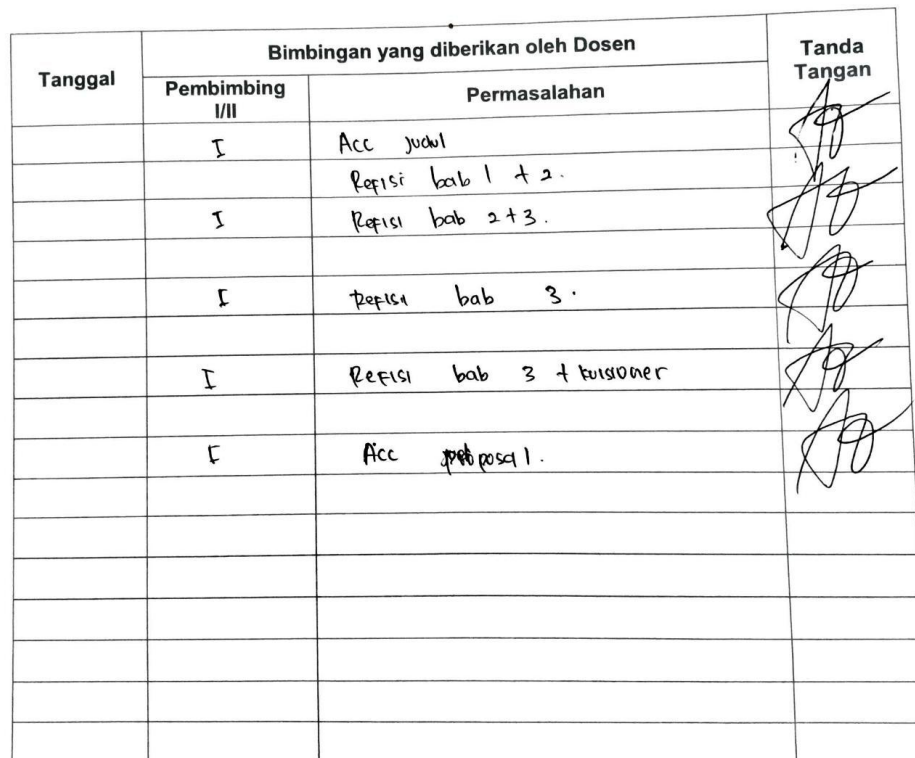 Bimbingan yang diberikan oleh Dosen
Tanda
Tangan
Tanggal
Pembimbing
I/II
Permasalahan
I Acc Judul
Refisi bab 1 + 2.
I Refisi bab 2+3.
I Refisi bab 3.
I Refisi bab 3 + kuisioner
I Acc proposal.